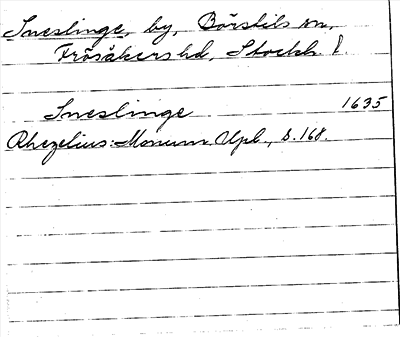 Sneslinge, by, Börstils sn,
Frösåkers hd, Stockh. l.
Sneslinge 1635
Rhezelius: Monum. Upl., s. 168.